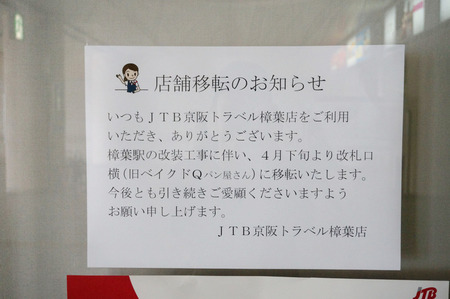 店舗移転のお知らせ
いつもJTB京阪トラベル樟葉店をご利用
いただき、ありがとうございます。
樟葉駅の改装工事に伴い、4月下旬より改札口
横(旧ベイクドQパン屋さん)に移転いたします。
今後とも引き続きご愛顧くださいますよう
お願い申し上げます。
JTB京阪トラベル樟葉店
JTB